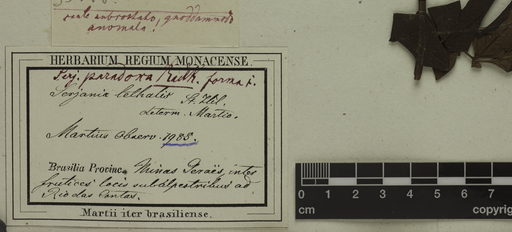 ovale subrostato, quodammodo
anomala!
HERBARIUM REGIUM MONACENSE.
Serj. paradoxa Radk. forma 1.
Serjania lethalis St. Hil.
determ. Martio.
Martius Observ. 1985.
Brasilia Provinc. Minas Geraës, inter
frutices locis subalpestribus ad
Rio das Contas.
Martii iter brasiliense.
0 1 2 3 4 5 6 7
cm copyright